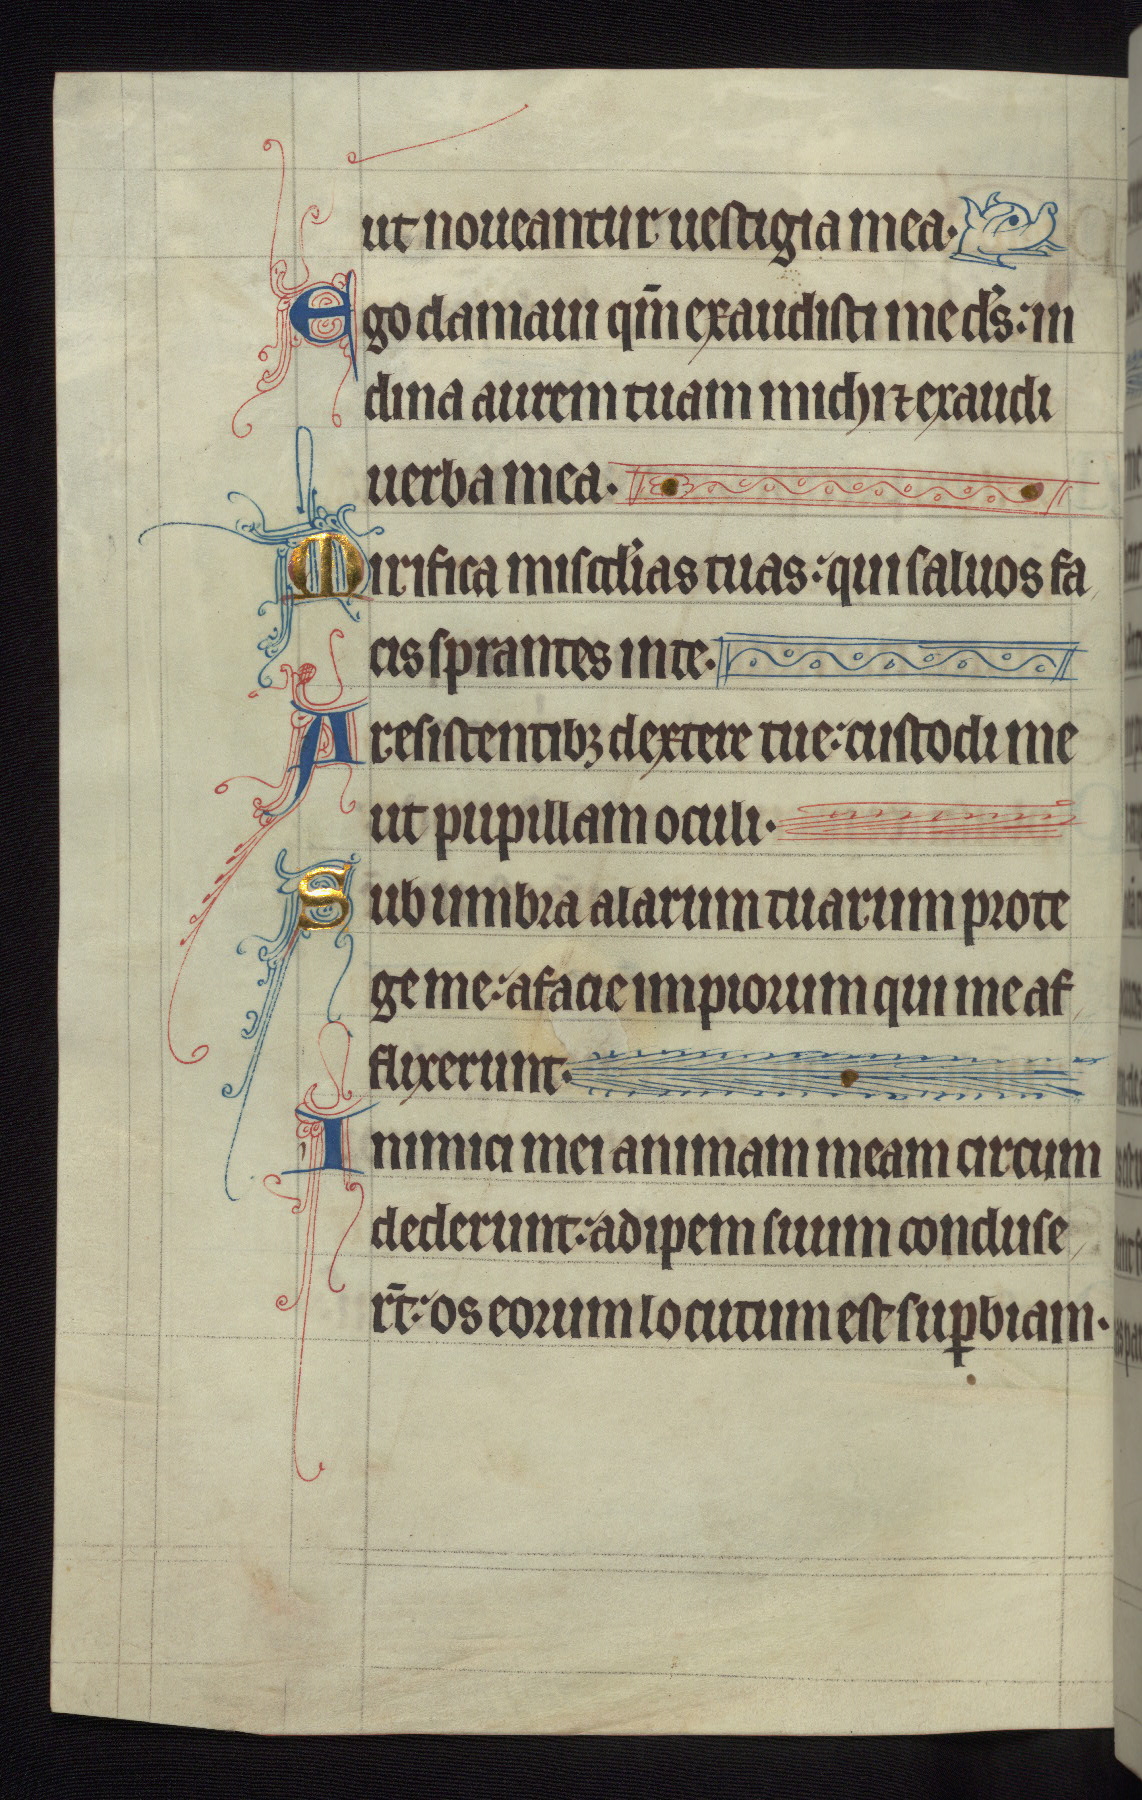 ut noueantur uestigia mea·
Ego clamaui qm̄ exaudisti me ds̄: in
clina aurem tuam michi ⁊ exaudi
uerba mea·
Mirifica misc̄dias tuas: qui saluos fa
cis sprantes in te·
A resistentibꝫ dextere tue: custodi me
ut pupillam oculi·
Sub umbra alarum tuarum prote
ge me: a facie impiorum qui me af
flixerunt·
Inimici mei animam meam circum
dederunt: adipem suum concluse
rt̄: os eorum locutum est suꝑbiam·